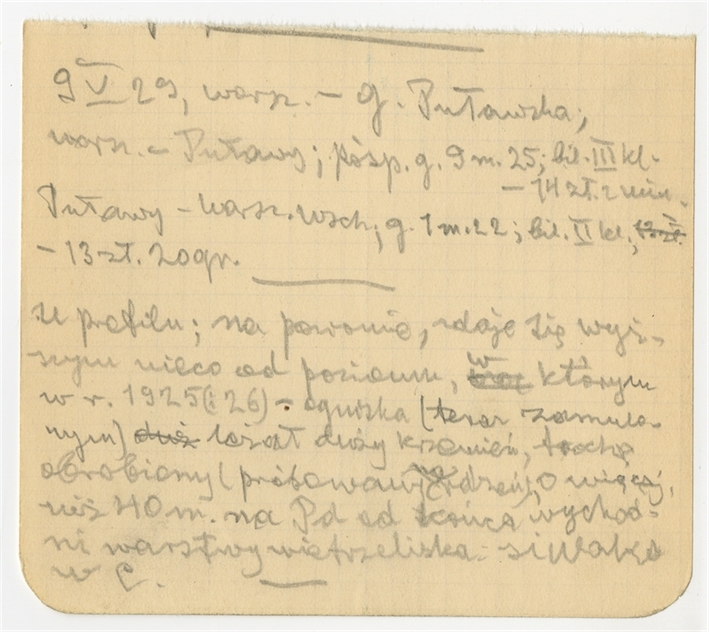 9 V 29, warsz. – g. Puławska;
warsz. – Puławy; pósp. g. 9 m. 25; bil. III kl.
– 14 zł.
Puławy – warsz. wsch.; g. 1 m. 22; bil. II kl.;
– 13 zł. 20 gr.
profilu; na poziomie, zdaje się wyż-
szym nieco od poziomu, w którym
w r. 1925 (i 26) – ogniska (teraz zamula-
nym) duż leżał duży krzemień, trochę
obrobiony (próbowany na rdzeń), o więcej,
niż 40 m. na Pd od końca wychod-
ni warstwy wietrzeliska
w C.